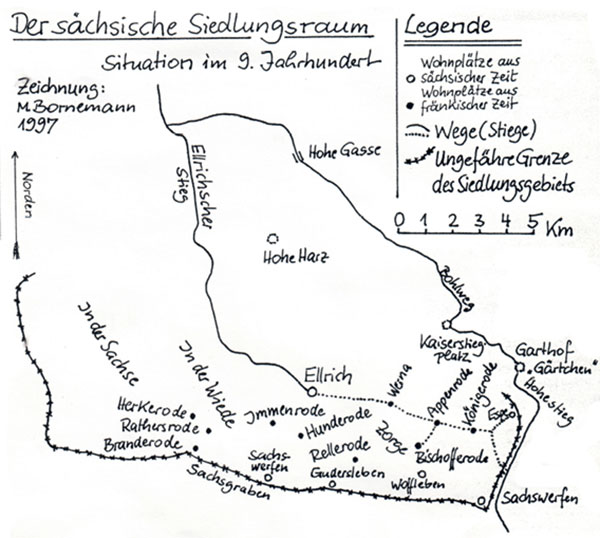 Der sächsische Siedlungsraum
Situation im 9. Jahrhundert
Zeichnung:
M. Bornemann
1997
Norden
Legende
Wohnplätze aus
sächsischer Zeit
Wohnplätze aus
fränkischer Zeit
Wege (Stiege)
Ungefähre Grenze
des Siedlungsgebiets
0 1 2 3 4 5 Km
Hohe Gasse
Ellrichscher
Stieg
Hohe Harz
Bohlweg
Kaiserstieg-
platz
Garthof
"Gärtchen"
Hohestieg
In der Sachse
In der Wiede
Ellrich
Werna
Appenrode
Königerode
Espe
Herkerode
Rathersrode
Branderode
Immenrode
Hunderode
Zorge
Rellerode
Bischofferode
Sachs-
werfen
Gudersleben
Woffleben
Sachsgraben
Sachswerfen